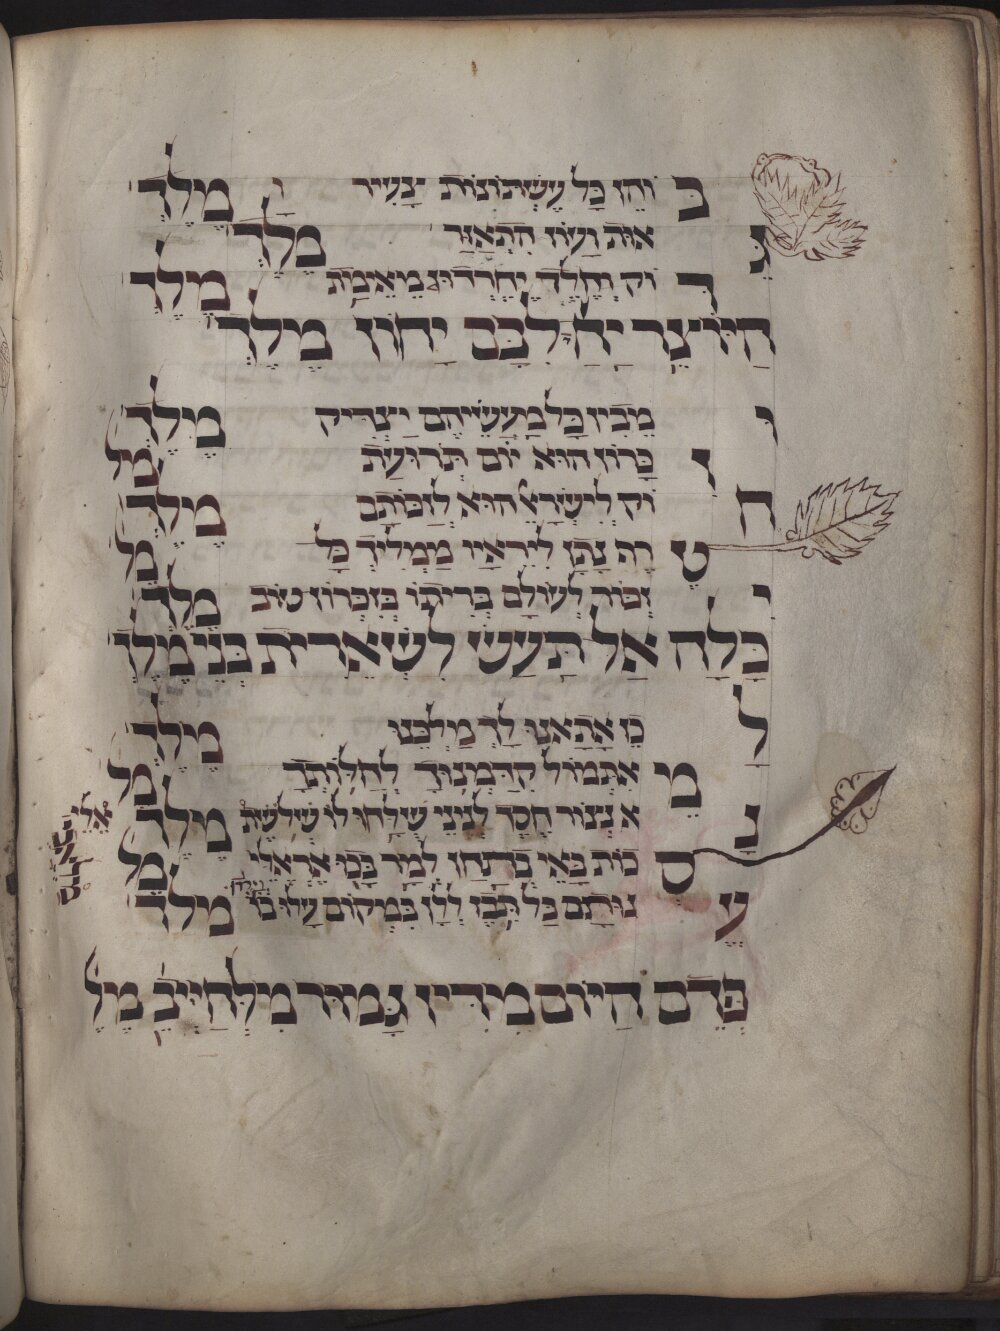 ב וחן כל עשתונות יצעיר ו מלך
ג אות ועוז התאזר מלך
ד וק וחלד יחרדון מאימת מלך
היוצר יחד לבם יחון מלך
ו מבין כל מעשיהם יצדיק מלך
ז כרון הוא יום תרועת מל
ח וק לישראל הוא לזכותם מלך
ט רה נתן ליראיו ממליך כל מל
י זכור לעולם בריתו בזכרון טוב מלך
כלה אל תעש לשארית בני מלך
ל כן אתאנו לך מלכנו מלך
מ אתמול קדמנוך לחלותך מל
נ א נצור חסד לניני שילחו לו שלשת מלך
ס כות באי בדתחן למד בני אראלי מל
ע נותם בל תבז ללון במקום
פדם היום מדין גמור מלחייב מל